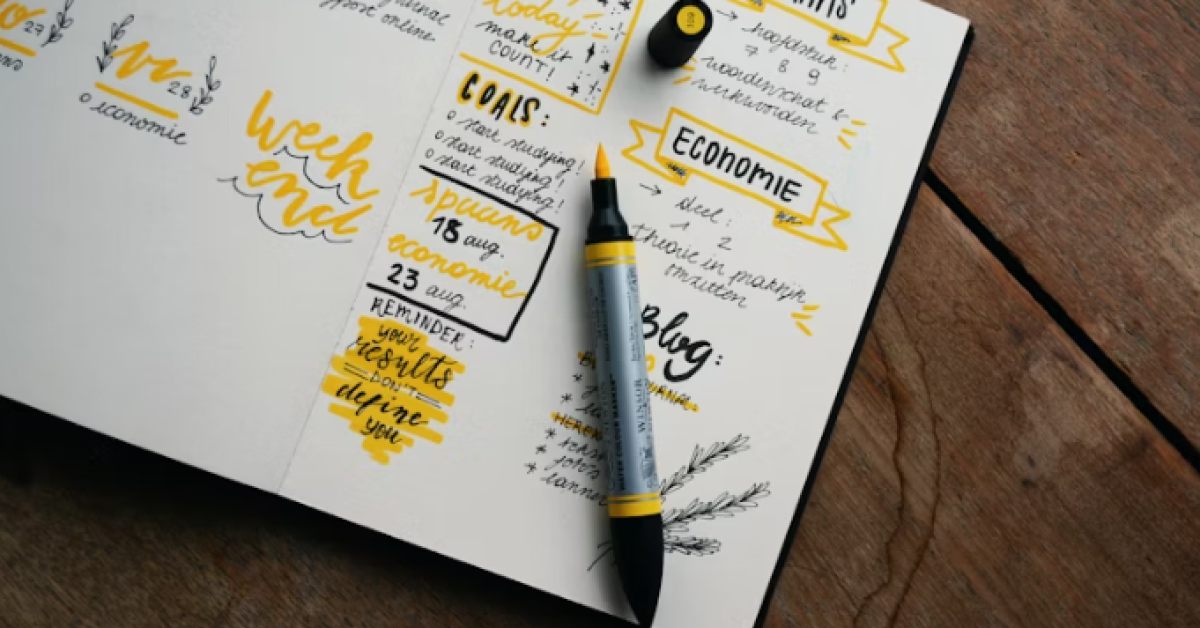 27
vr
28
o economie
week
end
post online
today
make it
COUNT!
GOALS:
o start studying!
o start studying!
o start studying!
spaans
18 aug.
economie
23 aug.
REMINDER:
your
results
DON'T
define
you
109
→ hoofdstuk:
7 8 9
→ woordenschat &
werkwoorden
ECONOMIE
→ deel:
1 2
→ theorie in praktijk
omzetten
Blog:
* foto's
* banner
WINSOR